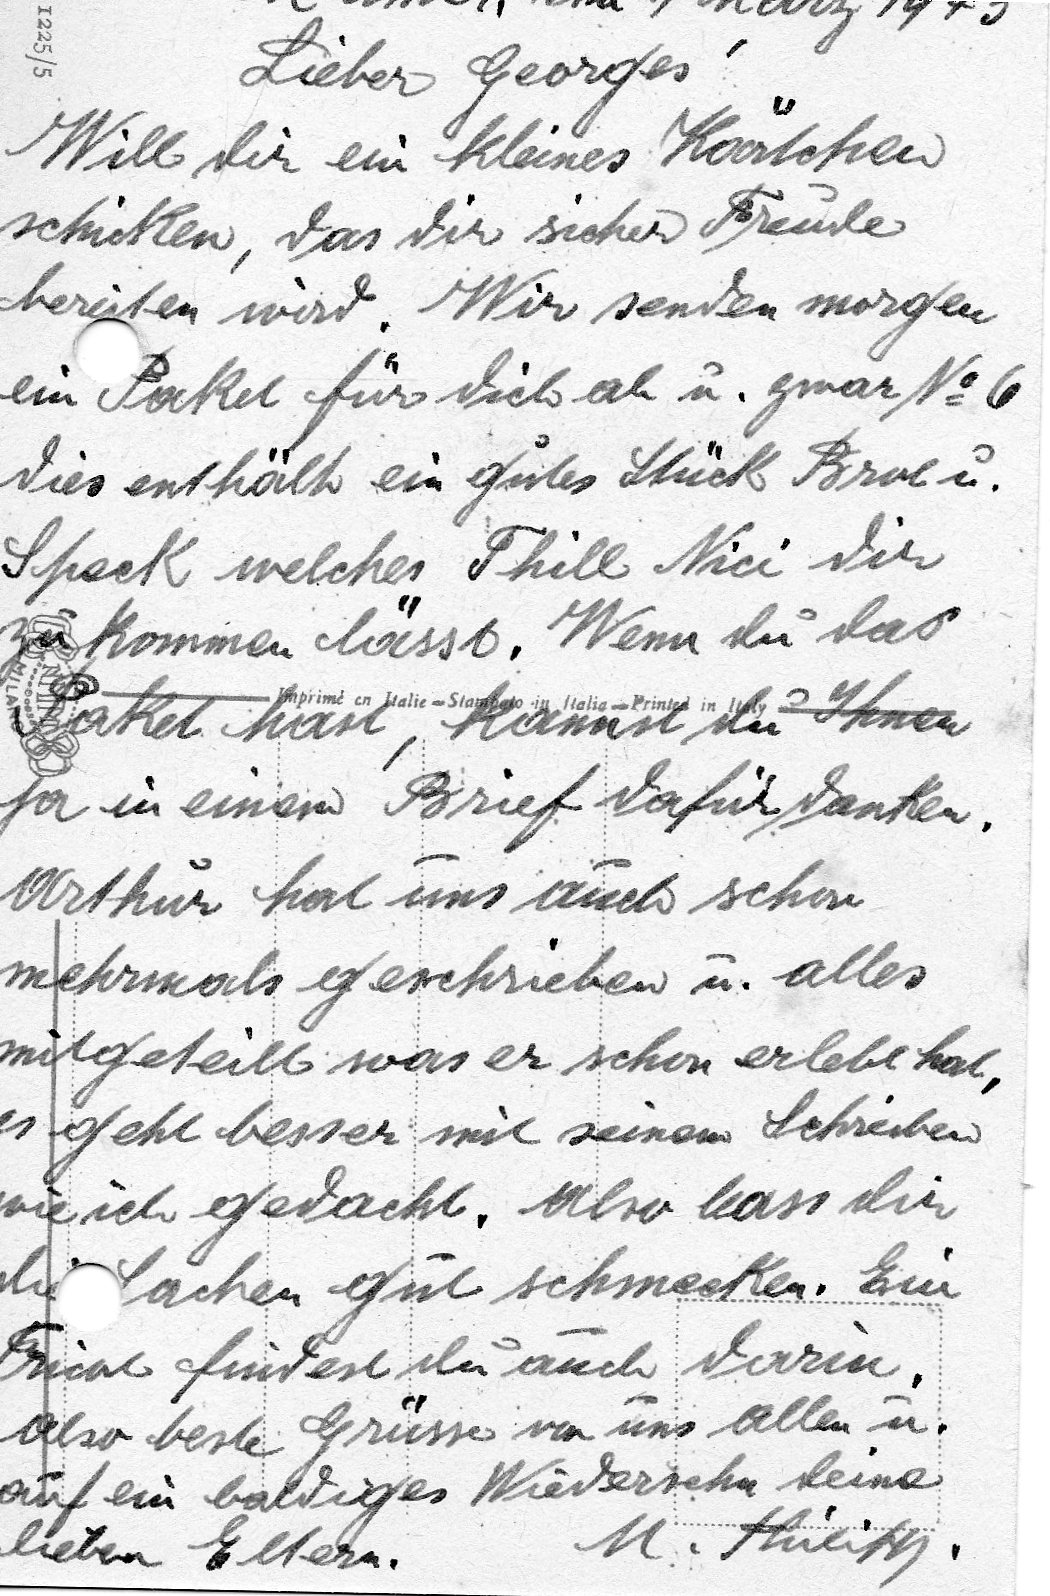 1225/5
März 1943
Lieber Georges!
Will dir ein kleines Käärtchen
schicken, das dir sicher Freude
bereiten wird. Wir senden morgen
ein Paket für dich ab u. zwar No 6
dies enthält ein gutes Stück Brot u.
Speck welches Thill Nici dir
zu kommen lässt. Wenn du das
Imprimé en Italie – Stampato in Italia – Printed in Italy
Paket hast, kannst du Ihnen
MILANO
ja in einem Brief dafür danken.
Arthur hat uns auch schon
mehrmals geschrieben u. alles
mitgeteilt was er schon erlebt hat,
es geht besser mit seinem Schreiben
wie ich gedacht. Also lass dir
die Sachen gut schmecken. Ein
Tricot findest du auch darin.
Also beste Grüsse von uns allen u.
auf ein baldiges Wiedersehn deine
lieben Eltern. M.